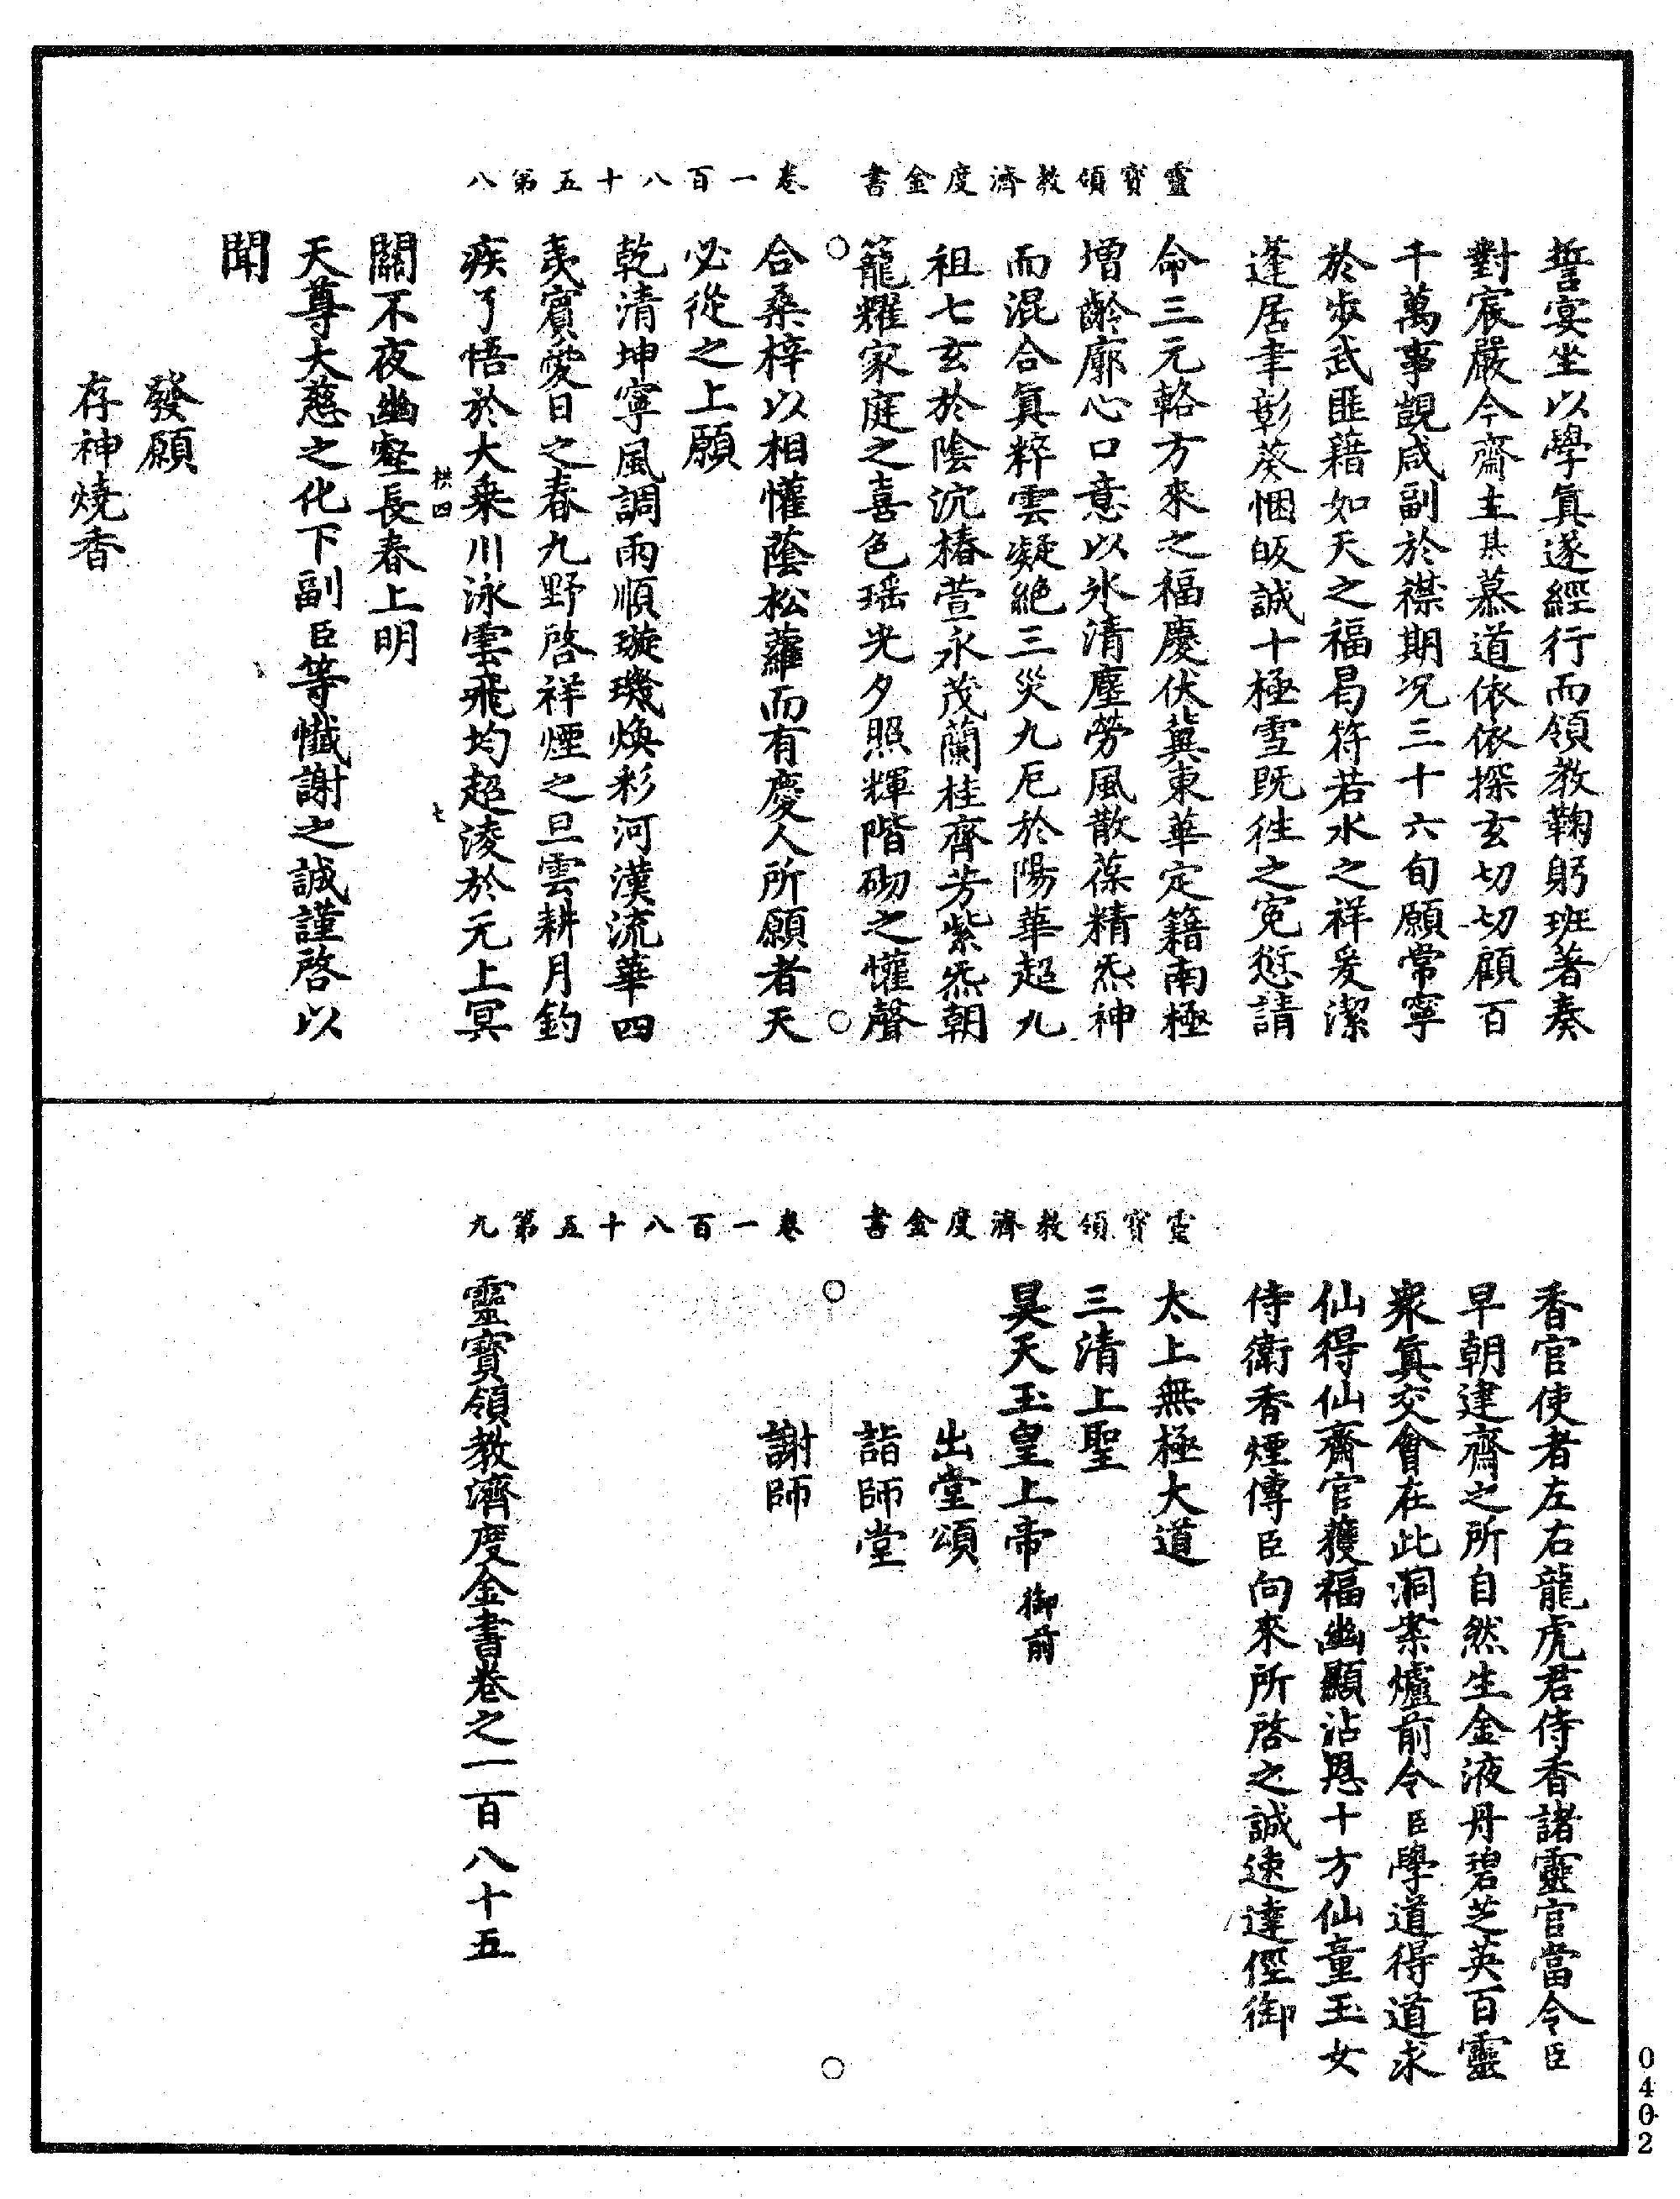 靈寶領教濟度金書　卷一百八十五第八
誓宴坐以學真遂經行而領教鞠躬班著奏
對宸嚴今齋主某慕道依依探玄切切顧百
千萬事覬咸副於襟期况三十六旬願常寧
於步武匪藉如天之福曷符若水之祥爰潔
蓬居聿彰葵悃皈誠十極雪既徃之寃愆請
命三元輅方來之福慶伏冀東華定籍南極
增齡廓心口意以氷清塵勞風散葆精炁神
而混合真粹雲凝絶三災九厄於陽華超九
祖七玄於陰沉椿萱永茂蘭桂齊芳紫炁朝
籠耀家庭之喜色瑶光夕照輝階砌之懽聲
合桑梓以相懽蔭松蘿而有慶人所願者天
必從之上願
乾清坤寧風調雨順璇璣焕彩河漢流華四
夷賓愛日之春九野啓祥煙之旦雲耕月釣
疾了悟於大乗川泳雲飛均超淩於元上冥
栱四　七
關不夜幽壑長春上明
天尊大慈之化下副臣等懺謝之誠謹啓以
聞
發願
存神燒香
靈寶領教濟度金書　卷一百八十五第九
香官使者左右龍虎君侍香諸靈官當令臣
早朝建齋之所自然生金液丹碧芝英百靈
衆真交會在此洞案爐前令臣學道得道求
仙得仙齋官獲福幽顯沾恩十方仙童玉女
侍衛香煙傳臣向來所啓之誠速達徑御
太上無極大道
三清上聖
昊天玉皇上帝御前
出堂頌
詣師堂
謝師
靈寶領教濟度金書卷之一百八十五
0402